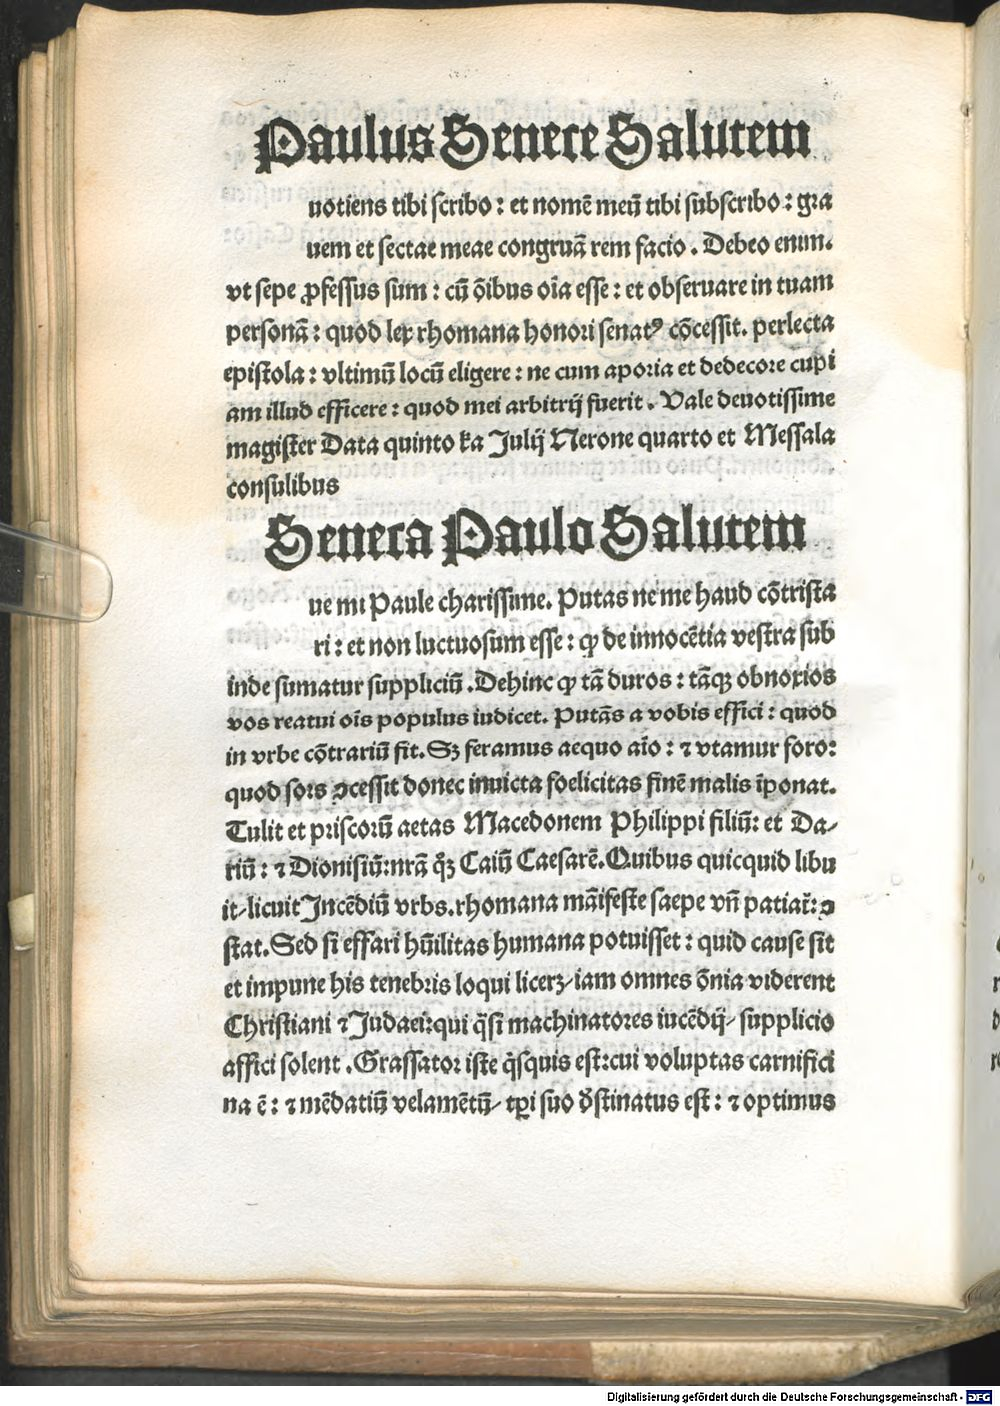 Paulus Senece Salutem
uotiens tibi scribo: et nomē meū tibi subscribo: gra
uem et sectae meae congruā rem facio. Debeo enim.
vt sepe ꝓfessus sum: cū ōibus oīa esse: et obseruare in tuam
personā: quod lex rhomana honori senatꝰ cōcessit. perlecta
epistola: vltimū locū eligere: ne cum aporia et dedecore cupi
am illud efficere: quod mei arbitrij fuerit. Vale deuotissime
magister Data quinto ka Julij Nerone quarto et Messala
consulibus
Seneca Paulo Salutem
ue mi Paule charissime. Putas ne me haud cōtrista
ri: et non luctuosum esse: ꝙ de innocētia vestra sub
inde sumatur suppliciū. Dehinc ꝙ tā duros: tāqꝫ obnoxios
vos reatui oīs populus iudicet. Putās a vobis effici: quod
in vrbe cōtrariū fit. Sꝫ feramus aequo aīo: ⁊ vtamur foro:
quod sors ꝯcessit donec inuicta foelicitas finē malis īponat.
Tulit et priscorū aetas Macedonem Philippi filiū: et Da/
riū: ⁊ Dionisiū: nrā qꝫ Caiū Caesarē. Quibus quicquid libu
it/licuit Jncēdiū vrbs.rhomana māifeste saepe vñ patiat̄: ꝯ
stat. Sed si effari hūilitas humana potuisset: quid cause sit
et impune his tenebris loqui licerꝫ/iam omnes ōnia viderent
Christiani ⁊ Judaei: qui q̄si machinatores incēdij/ supplicio
affici solent. Grassator iste q̇squis est: cui voluptas carnifici
na ē: ⁊ mēdatiū velamētū/ tꝑi suo d̄stinatus est: ⁊ optimus
Digitalisierung gefördert durch die Deutsche Forschungsgemeinschaft - DFG